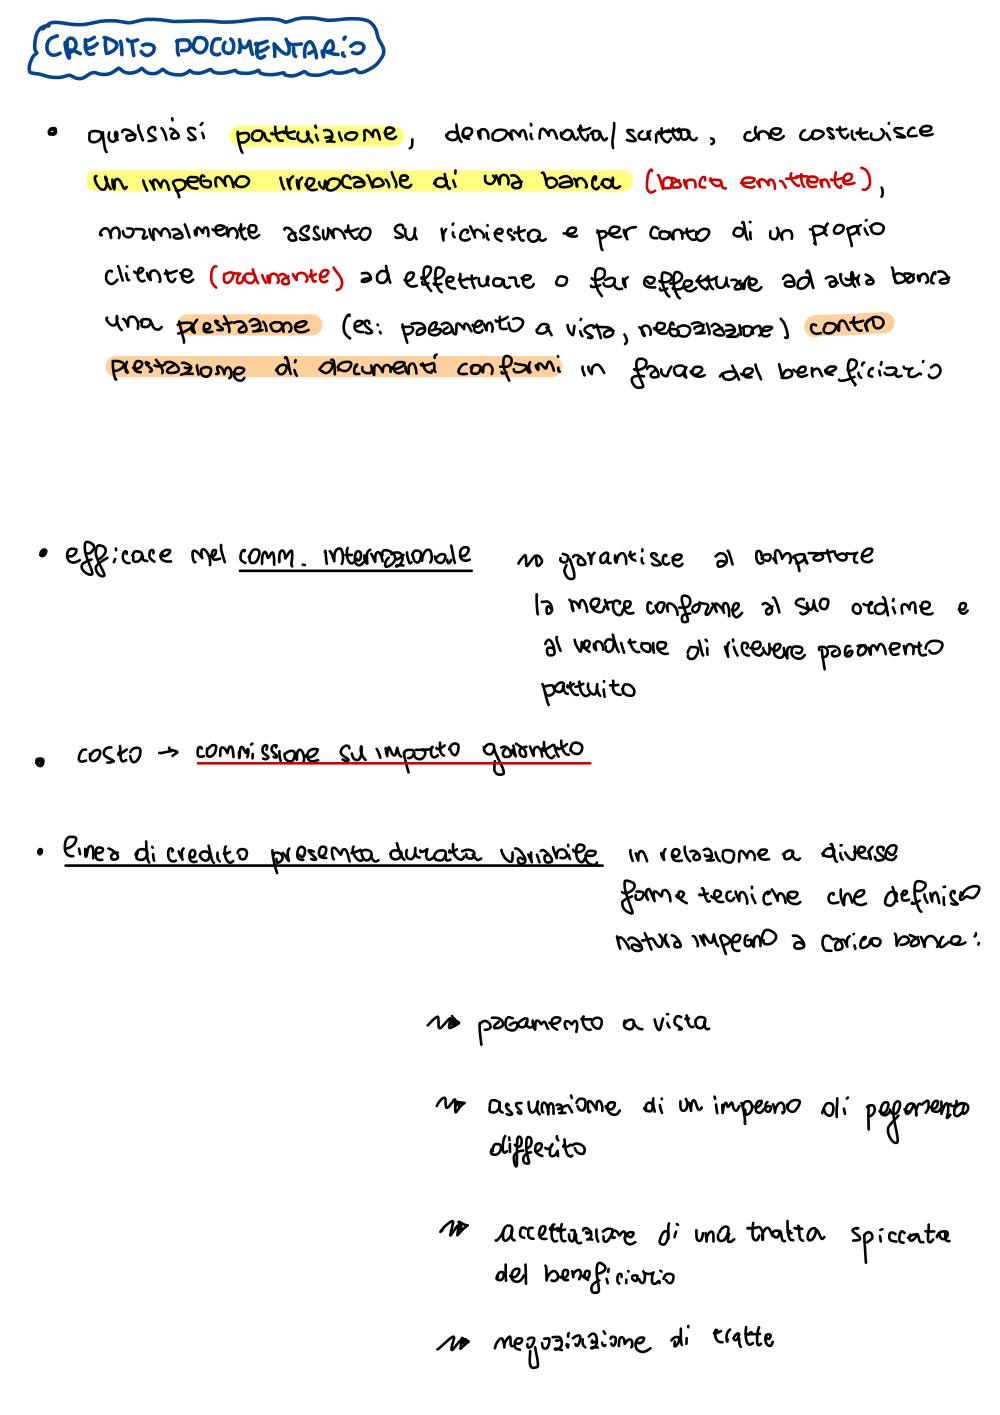 CREDITO DOCUMENTARIO
• qualsiasi pattuizione, denominata/scritta, che costituisce
un impegno irrevocabile di una banca (banca emittente),
normalmente assunto su richiesta e per conto di un proprio
cliente (ordinante) ad effettuare o far effettuare ad altra banca
una prestazione (es: pagamento a vista, negoziazione) contro
prestazione di documenti conformi in favore del beneficiario
• efficace nel comm. internazionale ⇝ garantisce al compratore
la merce conforme al suo ordine e
al venditore di ricevere pagamento
pattuito
• costo → commissione su importo garantito
• linea di credito presenta durata variabile in relazione a diverse
forme tecniche che definisco
natura impegno a carico banca:
⇝ pagamento a vista
⇝ assunzione di un impegno di pagamento
differito
⇝ accettazione di una tratta spiccata
del beneficiario
⇝ negoziazione di tratte